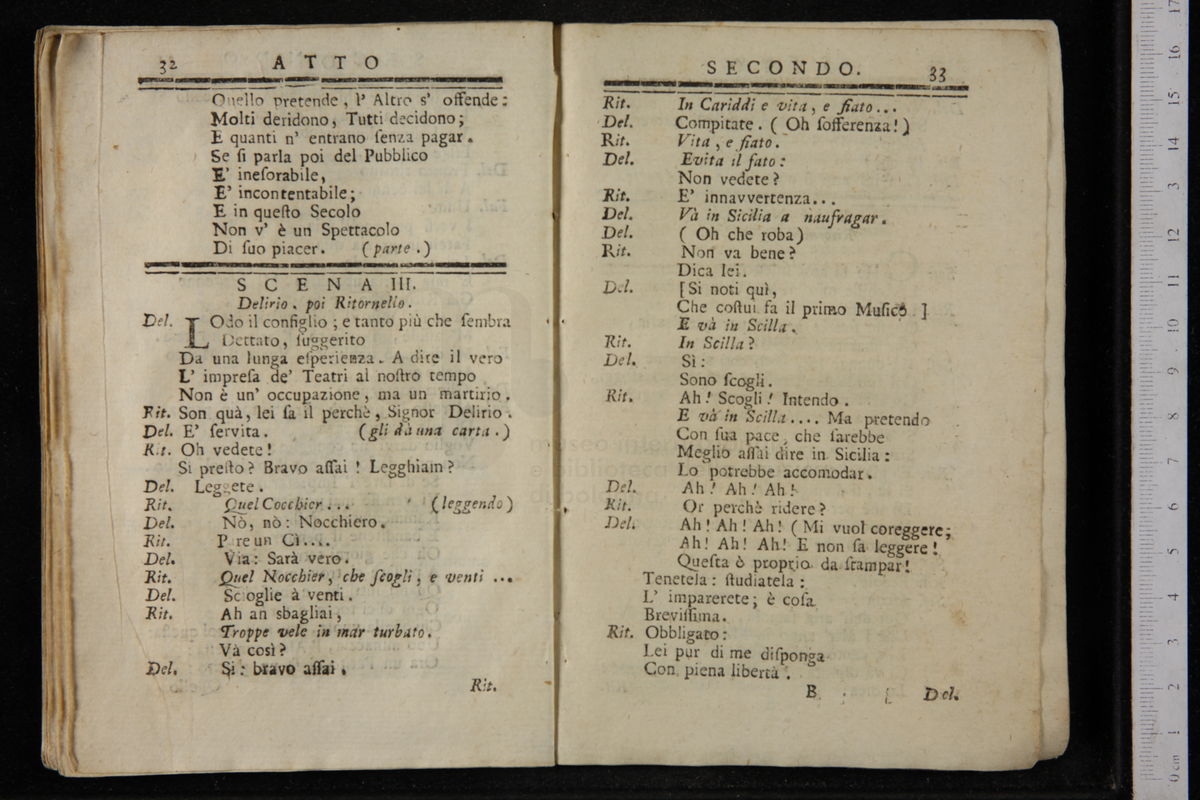 32 ATTO
Quello pretende, l' Altro s' offende:
Molti deridono, Tutti decidono;
E quanti n' entrano ſenza pagar.
Se ſi parla poi del Pubblico
E' ineſorabile,
E' incontentabile;
E in queſto Secolo
Non v' è un Spettacolo
Di ſuo piacer. (parte.)
SCENA III.
Delirio, poi Ritornello.
Del. LOdo il conſiglio; e tanto più che ſembra
Dettato, ſuggerito
Da una lunga eſperienza. A dire il vero
L' impreſa de' Teatri al noſtro tempo
Non è un' occupazione, ma un martirio.
Rit. Son quà, lei ſa il perchè, Signor Delirio.
Del. E' ſervita. (gli dà una carta.)
Rit. Oh vedete!
Si preſto? Bravo aſſai! Legghiam?
Del. Leggete.
Rit. Quel Cocchier... (leggendo)
Del. Nò, nò: Nocchiero.
Rit. Pareun Cì....
Del. Via: Sarà vero.
Rit. Quel Nocchier, che ſcogli, e venti ...
Del. Scioglie à venti.
Rit. Ah an sbagliai,
Troppe vele in mar turbato.
Và così?
Del. Si: bravo aſſai.
Rit.
SECONDO. 33
Rit. In Cariddi e vita, e fiato...
Del. Compitate. (Oh ſofferenza!)
Rit. Vita, e fiato.
Del. Evita il fato:
Non vedete?
Rit. E' innavvertenza...
Del. Và in Sicilia a naufragar.
Del. (Oh che roba)
Rit. Non va bene?
Dica lei.
Del. [Si noti quì,
Che coſtui fa il primo Muſico]
E và in Scilla.
Rit. In Scilla?
Del. Sì:
Sono ſcogli.
Rit. Ah! Scogli! Intendo.
E và in Scilla.... Ma pretendo
Con ſua pace, che ſarebbe
Meglio aſſai dire in Sicilia:
Lo potrebbe accomodar.
Del. Ah! Ah! Ah!
Rit. Or perchè ridere?
Del. Ah! Ah! Ah! (Mi vuol coreggere;
Ah! Ah! Ah! E non ſa leggere!
Queſta è proprio da ſtampar!
Tenetela: ſtudiatela:
L' imparerete; è coſa
Breviſſima.
Rit. Obbligato:
Lei pur di me diſponga
Con piena libertà.
B Del.